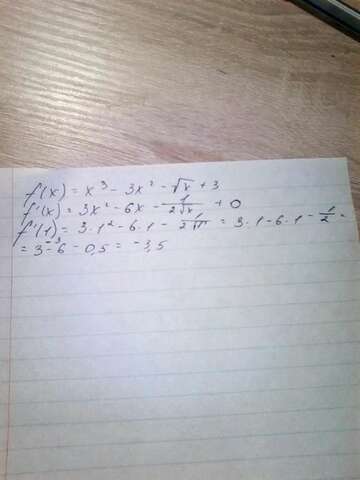 f(x) = x³ - 3x² - √x + 3
f'(x) = 3x² - 6x - 1/(2√x) + 0
f'(1) = 3·1² - 6·1 - 1/(2√1) = 3·1 - 6·1 - 1/2 =
= 3 - 6 - 0,5 = -3,5